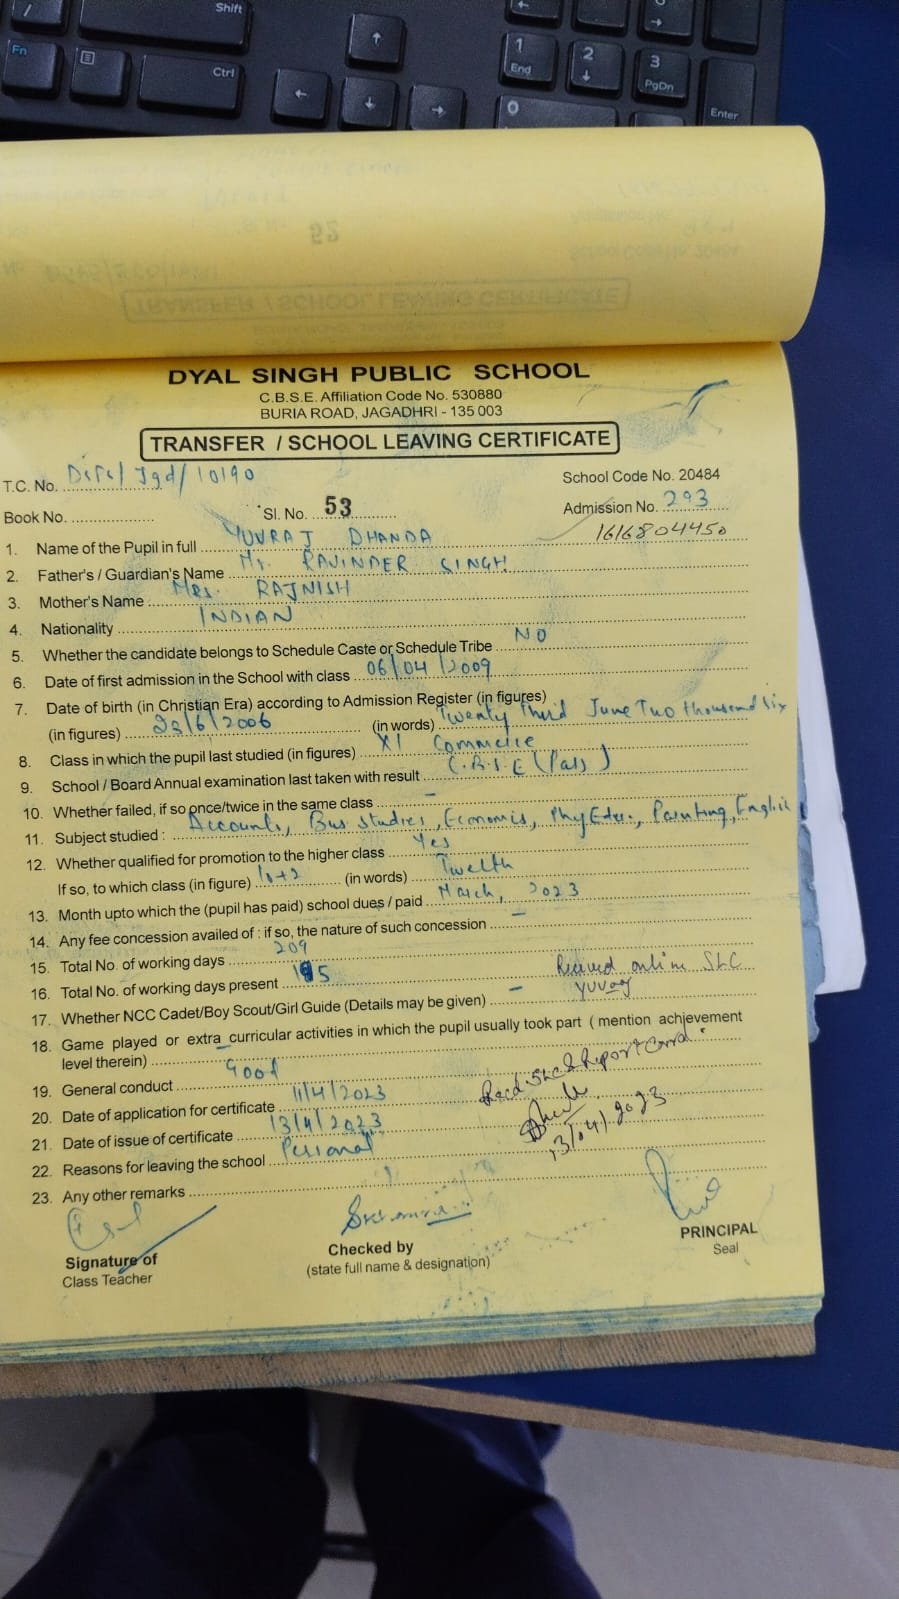 Shift
Fn
Ctrl
1
End
2
3
PgDn
0
Enter
52
TRANSFER / SCHOOL LEAVING CERTIFICATE
DYAL SINGH PUBLIC SCHOOL
C.B.S.E. Affiliation Code No. 530880
BURIA ROAD, JAGADHRI - 135 003
TRANSFER / SCHOOL LEAVING CERTIFICATE
T.C. No. DSPS/Jgd/10190 School Code No. 20484
Book No. Sl. No. 53 Admission No. 293
1616804450
1. Name of the Pupil in full YUVRAJ DHANDA
2. Father's / Guardian's Name Mr. RAVINDER SINGH
3. Mother's Name Mrs. RAJNISH
4. Nationality INDIAN
5. Whether the candidate belongs to Schedule Caste or Schedule Tribe NO
6. Date of first admission in the School with class 06/04/2009
7. Date of birth (in Christian Era) according to Admission Register (in figures)
(in figures) 23/6/2006 (in words) Twenty Third June Two thousand six
8. Class in which the pupil last studied (in figures) XI Commerce
9. School / Board Annual examination last taken with result C.B.S.E (Pass)
10. Whether failed, if so once/twice in the same class –
11. Subject studied : Accounts, Bus Studies, Economis, Phy Edu., Painting, English
12. Whether qualified for promotion to the higher class Yes
If so, to which class (in figure) 10+2 (in words) Twelth
13. Month upto which the (pupil has paid) school dues / paid March, 2023
14. Any fee concession availed of : if so, the nature of such concession –
15. Total No. of working days 209
16. Total No. of working days present 195 Received online SLC
17. Whether NCC Cadet/Boy Scout/Girl Guide (Details may be given) – Yuvraj
18. Game played or extra curricular activities in which the pupil usually took part ( mention achievement
level therein) –
19. General conduct Good Recd. SLC & Report Card.
20. Date of application for certificate 11/4/2023
21. Date of issue of certificate 13/4/2023 13/04/2023
22. Reasons for leaving the school Personal
23. Any other remarks
Signature of Checked by PRINCIPAL
Class Teacher (state full name & designation) Seal